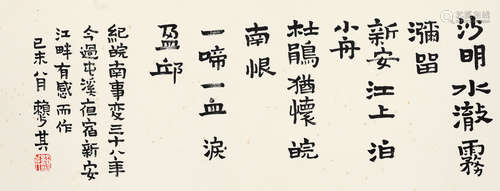 沙明水澂霧
瀰留
新安江上泊
小舟
杜鵑猶懷皖
南恨
一啼一血淚
盈邱
紀皖南事变三十八年
今過屯溪夜宿新安
江畔有感而作
己未八月 賴少其